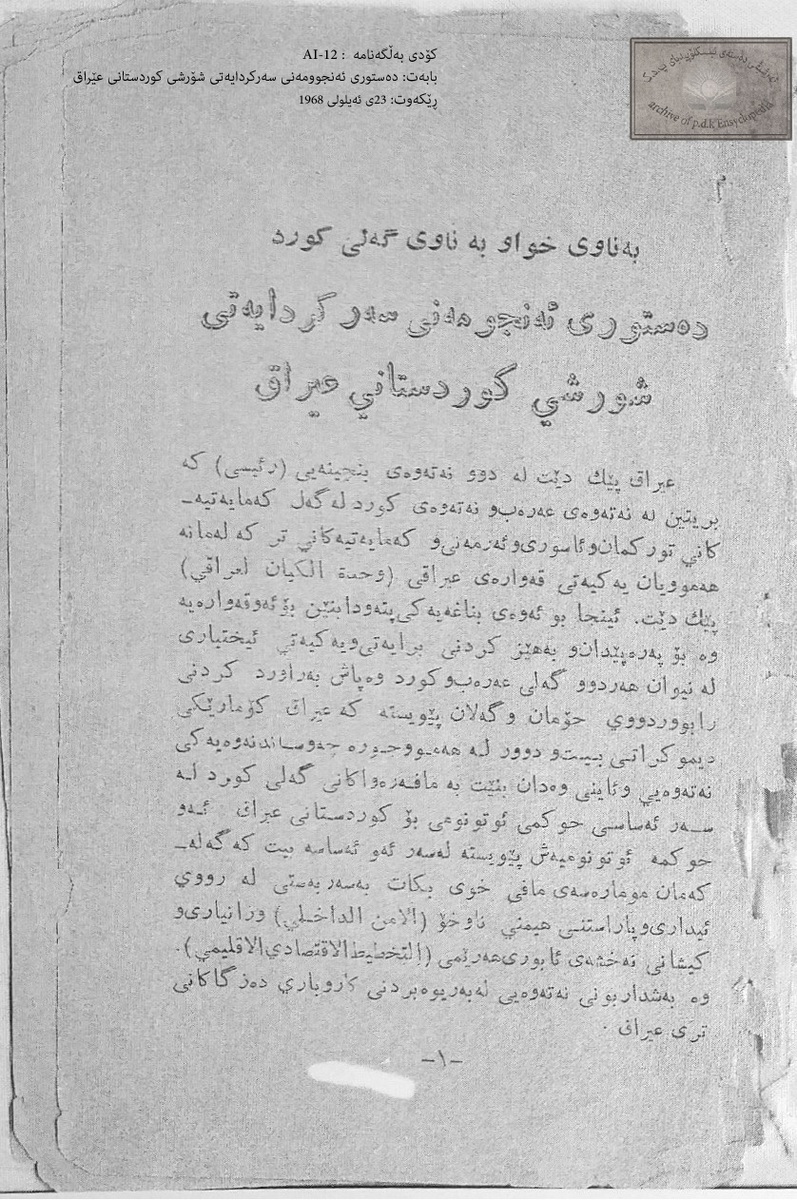 کۆدی بەڵگەنامە : AI-12
بابەت: دەستوری ئەنجوومەنی سەرکردایەتی شۆرشی کوردستانی عێراق
ڕێکەوت: 23ی ئەیلولی 1968
ئەرشیفی دەستەی ئینسکلۆپیدیای پەدەکە
archive of p.d.k Ensyclopedia
بەناوی خواو بە ناوی گەلی کورد
دەستوری ئەنجومەنی سەرکردایەتی
شورشي کوردستاني عیراق
عیراق پێك دێت لە دوو نەتەوەی بنچینەیی (رئیسی) کە
بریتین لە نەتەوەی عەرەب‌و نەتەوەی کورد لەگەل کەمایەتیەـ
کاني تورکمان‌وئاسوری‌وئەرمەنی‌و کەمایەتیەکاني تر کە لەمانە
هەموویان یەکیەتی قەوارەی عیراقی (وحدة الکیان لعراقي)
پێك دێت. ئینجا بو ئەوەی بناغەیەکی‌پتەودابنێین بۆئەوقەوارەیە
وە بۆ پەرەپێدان‌و بەهێز کردنی برایەتی‌ویەکیەتي ئیختیاری
لە نیوان هەردوو گەلی عەرەب‌وکورد وەپاش بەراورد کردنی
رابووردووي خۆمان وگەلان پێویستە کەعیراق کۆمارێکی
دیموکراتـی بـێـت‌و دوور لـە هەمـووجـورە چەوسـاندنەوەیەکی
نەتەوەیي وئاینی وەدان بنێت بە مافـەرەواکانی گەلی کورد لـە
ســەر ئەساسـی حوکمی ئوتونومی بۆ کوردستانی عیراق ئـەو
حوکمە ئوتونومیەش پێویستە لەسەر ئەو ئەساسە بیت کەگەلەـ
کەمان مومارەسەی مافی خوی بکات بەسەربەستی لە رووي
ئیداری‌وپاراستنـی هیمني ناوخۆ (الامن الداخلي) وزانیاری‌و
کیشانی نەخشەی ئابوری‌هەرێمی (التخطیط‌الاقتصادي‌الاقلیمي).
وە بەشداربونی نەتەوەیی لەبەریوەبردنی کاروباري دەزگاکانی
تری عیراق .
-١-